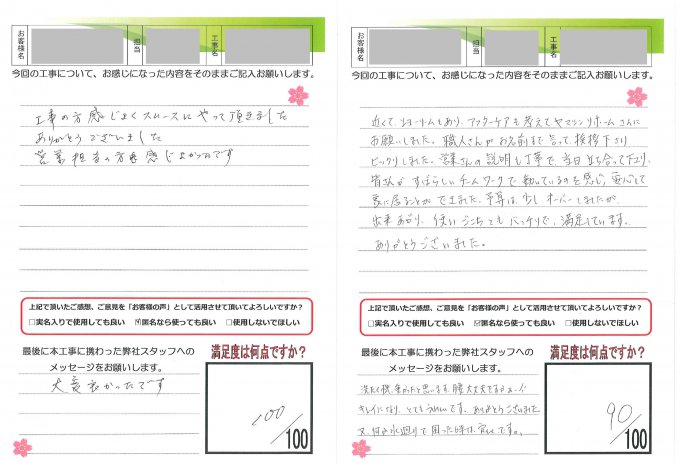 お客様名
担当
工事名
今回の工事について、お感じになった内容をそのままご記入お願いします。
工事の方感じよくスムースにやって頂きました
ありがとうございました
営業担当の方も感じよかったです
上記で頂いたご感想、ご意見を「お客様の声」として活用させて頂いてよろしいですか？
□実名入りで使用しても良い ☑匿名なら使っても良い □使用しないでほしい
最後に本工事に携わった弊社スタッフへの
メッセージをお願いします。
大変良かったです
満足度は何点ですか？
100
/100
お客様名
担当
工事名
今回の工事について、お感じになった内容をそのままご記入お願いします。
近くて、ショールームもあり、アフターケアも考えてヤマシンリホームさんに
お願いしました。職人さんがお名前まで言って、挨拶下さり
ビックリしました。営業さんの説明も丁寧で、当日立ち合って下さり、
皆さんがすばらしいチームワークで動いているのを感じ、安心して
家に居ることができました。予算は少しオーバーしましたが、
出来あがり、使いごこちもバッチリで、満足しています。
ありがとうございました。
上記で頂いたご感想、ご意見を「お客様の声」として活用させて頂いてよろしいですか？
□実名入りで使用しても良い ☑匿名なら使っても良い □使用しないでほしい
最後に本工事に携わった弊社スタッフへの
メッセージをお願いします。
洗たく機、重かったと思います。腰大丈夫ですか
キレイになり、とてもうれしいです。ありがとうございました
又、何か水廻りで困った時は宜しくです。
満足度は何点ですか？
90
/100